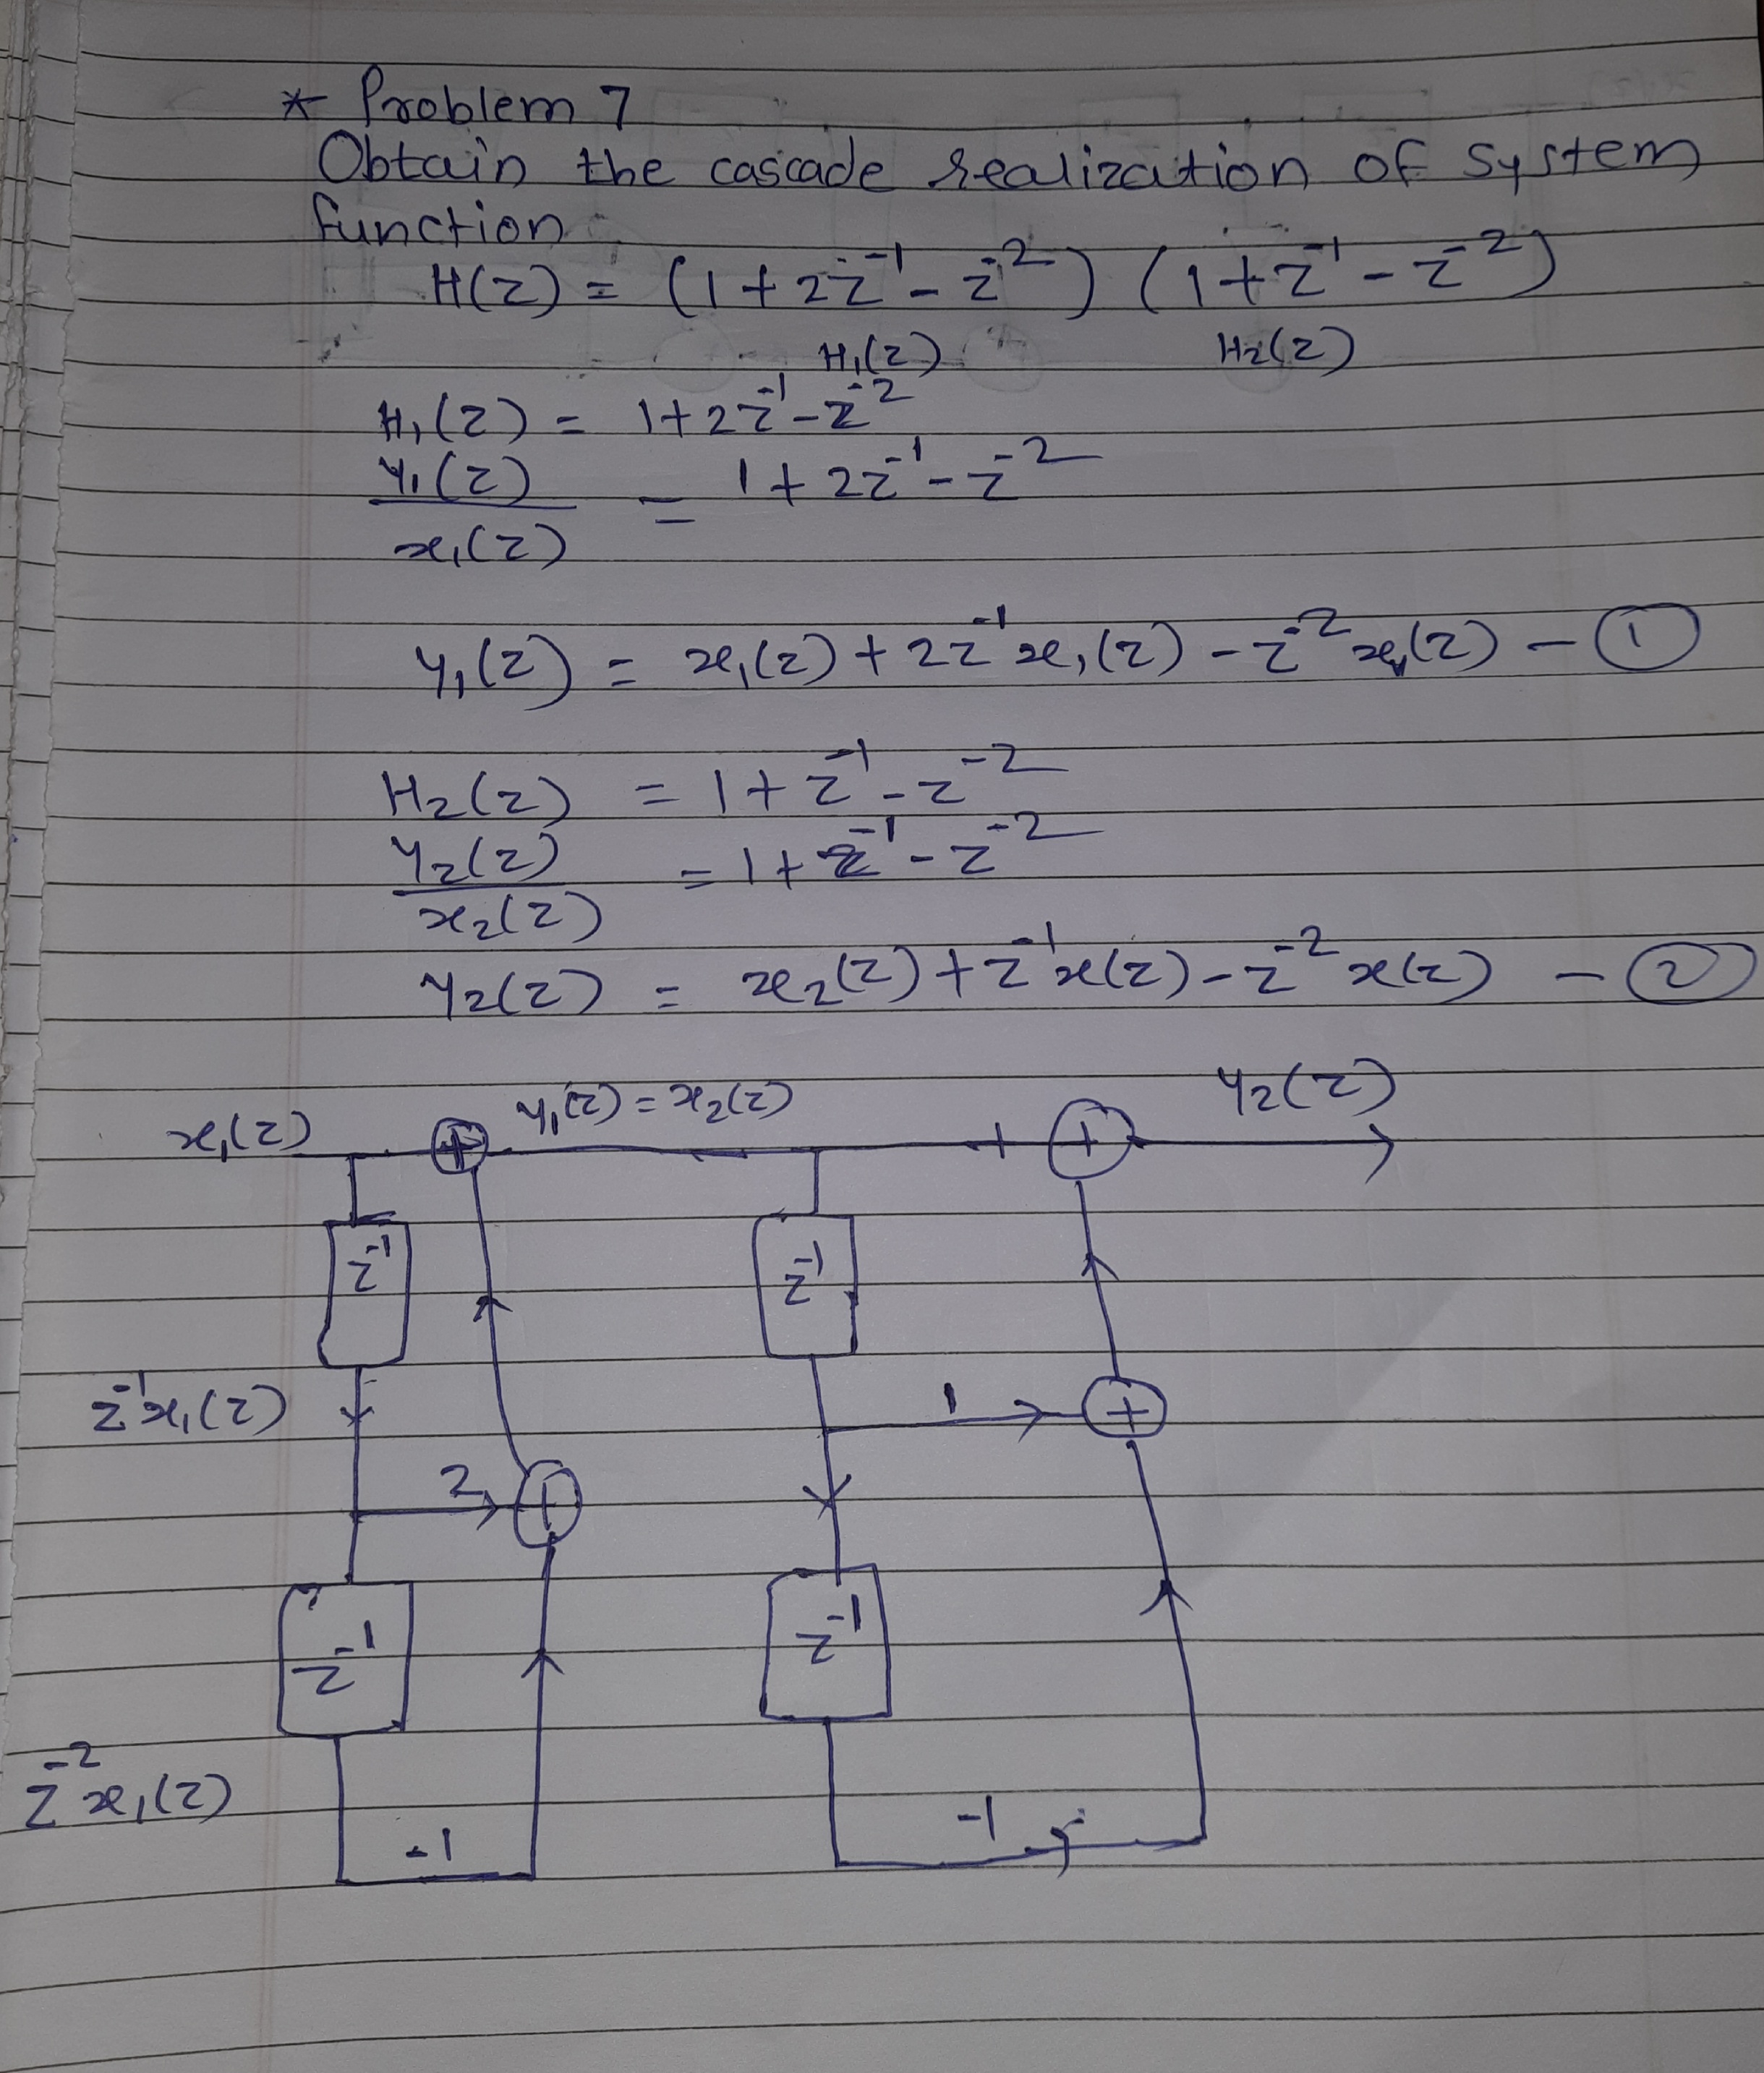 * Problem 7
Obtain the cascade realization of system
function
H(z) = (1 + 2z⁻¹ - z⁻²) (1 + z⁻¹ - z⁻²)
H₁(z) H₂(z)
H₁(z) = 1 + 2z⁻¹ - z⁻²
y₁(z) = 1 + 2z⁻¹ - z⁻²
x₁(z)
y₁(z) = x₁(z) + 2z⁻¹ x₁(z) - z⁻² x₁(z) - ①
H₂(z) = 1 + z⁻¹ - z⁻²
y₂(z) = 1 + z⁻¹ - z⁻²
x₂(z)
y₂(z) = x₂(z) + z⁻¹ x(z) - z⁻² x(z) - ②
x₁(z) + y₁(z) = x₂(z) + + y₂(z)
z⁻¹ z⁻¹
z⁻¹ x₁(z) 1 +
2 +
z⁻¹ z⁻¹
z⁻² x₁(z)
-1 -1